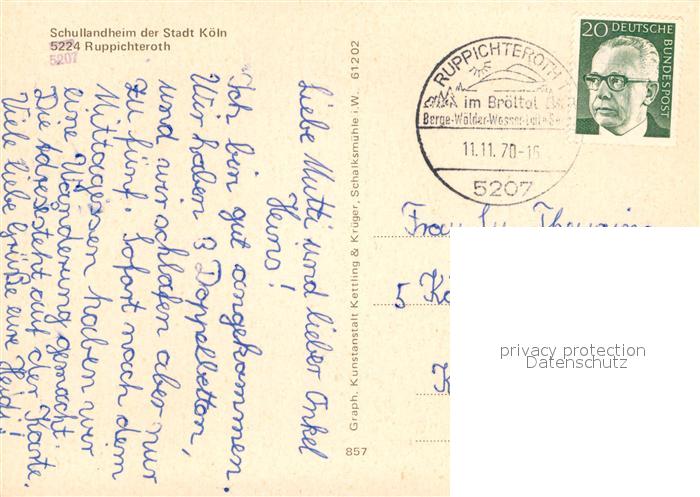 Schullandheim der Stadt Köln
5224 Ruppichteroth
5207
Liebe Mutti und lieber Onkel
Heins!
Ich bin gut angekommen.
Wir haben 3 Doppelbetten,
und wir schlafen aber nur
zu fünf. Sofort nach dem
Mittagessen haben wir
eine Wanderung gemacht.
Die Adresse steht auf der Karte.
Viele liebe Grüße eure Heidi!
Graph. Kunstanstalt Kettling & Krüger, Schalksmühle i.W. 61202
857
RUPPICHTEROTH
im Bröltal
Berge-Wälder-Wasser-
11.11.70-16
5207
20 DEUTSCHE
BUNDESPOST
Frau
5 Kö
K
privacy protection
Datenschutz